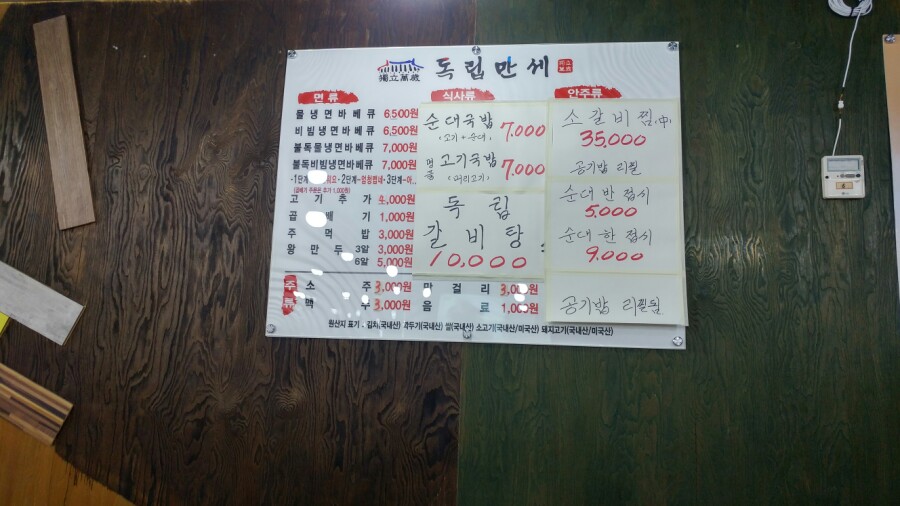 獨立萬歲 독립만세
면류
물냉면바베큐 6,500원
비빔냉면바베큐 6,500원
불독물냉면바베큐 7,000원
불독비빔냉면바베큐 7,000원
고기추가 4,000원
곱빼기 1,000원
주먹밥 3,000원
왕만두 3알 3,000원
6알 5,000원
식사류
순대국밥 7,000
(고기+순대)
고기국밥 7,000
(머리고기)
독립
갈비탕
10,000
안주류
소갈비찜(中)
35,000
공기밥 리필
순대 반 접시
5,000
순대 한 접시
9,000
공기밥 리필됨
주류
소주 3,000원 막걸리 3,000원
맥주 3,000원 음료 1,000원
원산지 표기 : 김치(국내산) 깍두기(국내산) 쌀(국내산) 소고기(국내산/미국산) 돼지고기(국내산/미국산)